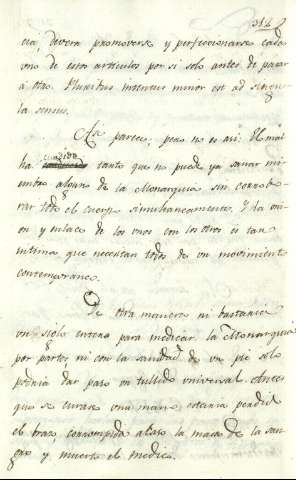 314
cia devera promoverse y perfeccionarse cada
uno de estos articulos por si solo antes de pasar
a otro. Pluribus intentus minor est ad singu-
la sensus.
Asi parece; pero no es asi. El mal
ha cundido tanto que no puede ya sanar mi-
embro alguno de la Monarquia sin corrobo-
rar todo el cuerpo simultaneamente. Y la uni-
on y enlace de los unos con los otros es tan
intima que necesitan todos de un movimiento
contemporaneo.
De otra manera ni bastaria
un siglo entero para medicar la Monarquia
por partes ni con la sanidad de un pie solo
podria dar paso un tullido universal. Antes
que se curase una mano estaria perdido
el brazo, corrompida la masa de la san-
gre y muerto el medico.